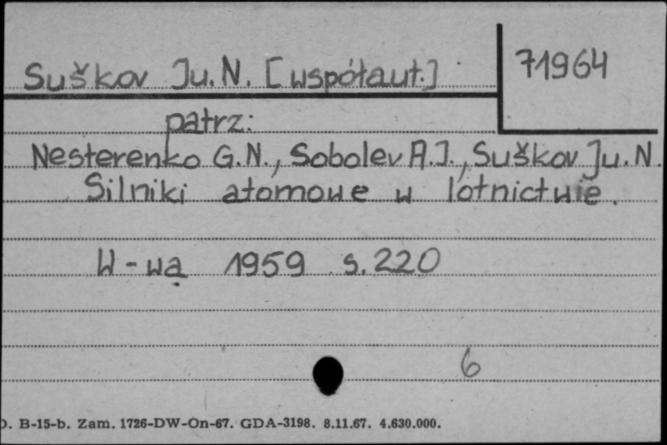 Suškov Ju. N. [współaut.]
71964
patrz:
Nesterenko G.N., Sobolev A.I., Suškov Ju. N.
Silniki atomowe w lotnictwie.
W-wa 1959 s. 220
6
D. B-15-b. Zam. 1726-DW-On-67. GDA-3198. 8.11.67. 4.630.000.